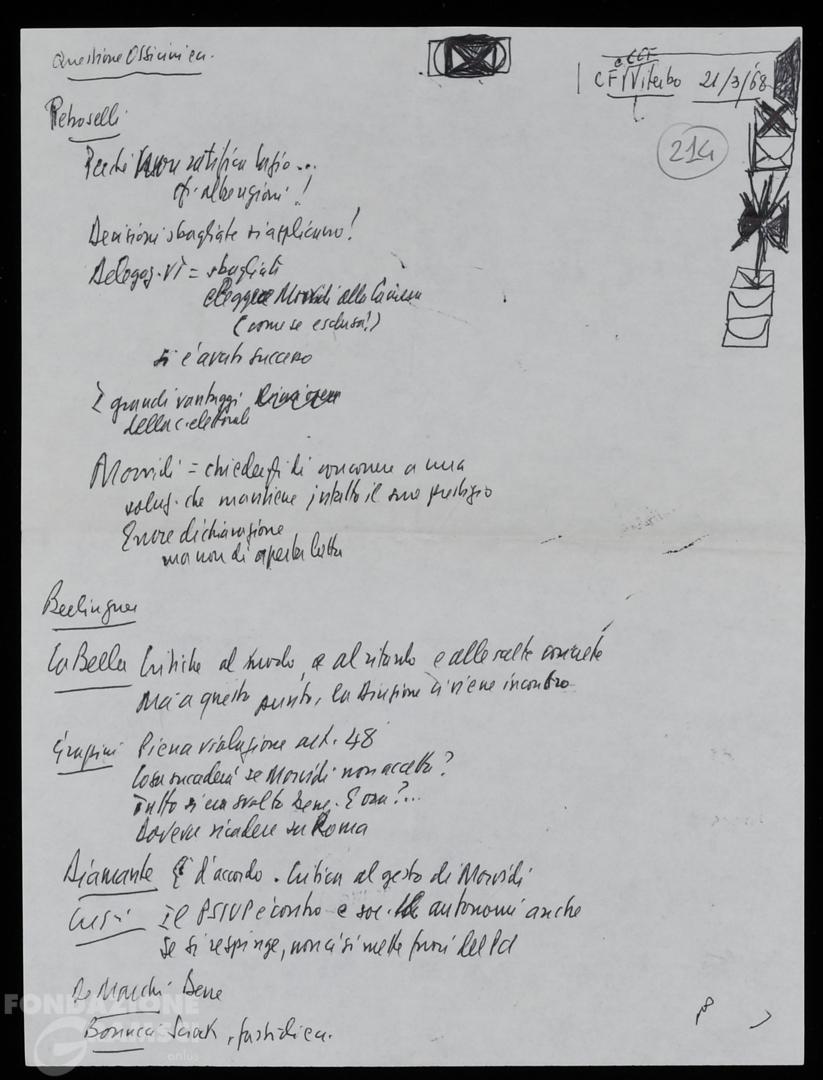 Questione Ossicini ecc.
CF e CCF
CF Viterbo 21/3/68
214
Petroselli
Perché non ratifica
Decisioni sbagliate si applicano!
Delegaz. VT = sbagliati
eleggere Morvidi alla Camera
(come se esclusa!)
si è avuto successo
I grandi vantaggi
della c. elettorale
Morvidi = chiedergli di concorrere a una
soluz. che mantiene intatto il suo prestigio
Errore dichiarazione
ma non di aperta lotta
Berlinguer
La Bella Critiche al modo, e al ritardo e alle scelte concrete
Ma a questo punto, la Direzione ci viene incontro
Piena violazione art. 48
Cosa succederà se Morvidi non accetta?
Tutto si era svolto bene. E ora?...
Doveva ricadere su Roma
Diamante È d'accordo. Critica al gesto di Morvidi
Il PSIUP è contro e soc. autonomi anche
Se si respinge, non ci si mette fuori del Pci
De Marchi Bene
FONDAZIONE
GRAMSCI
onlus